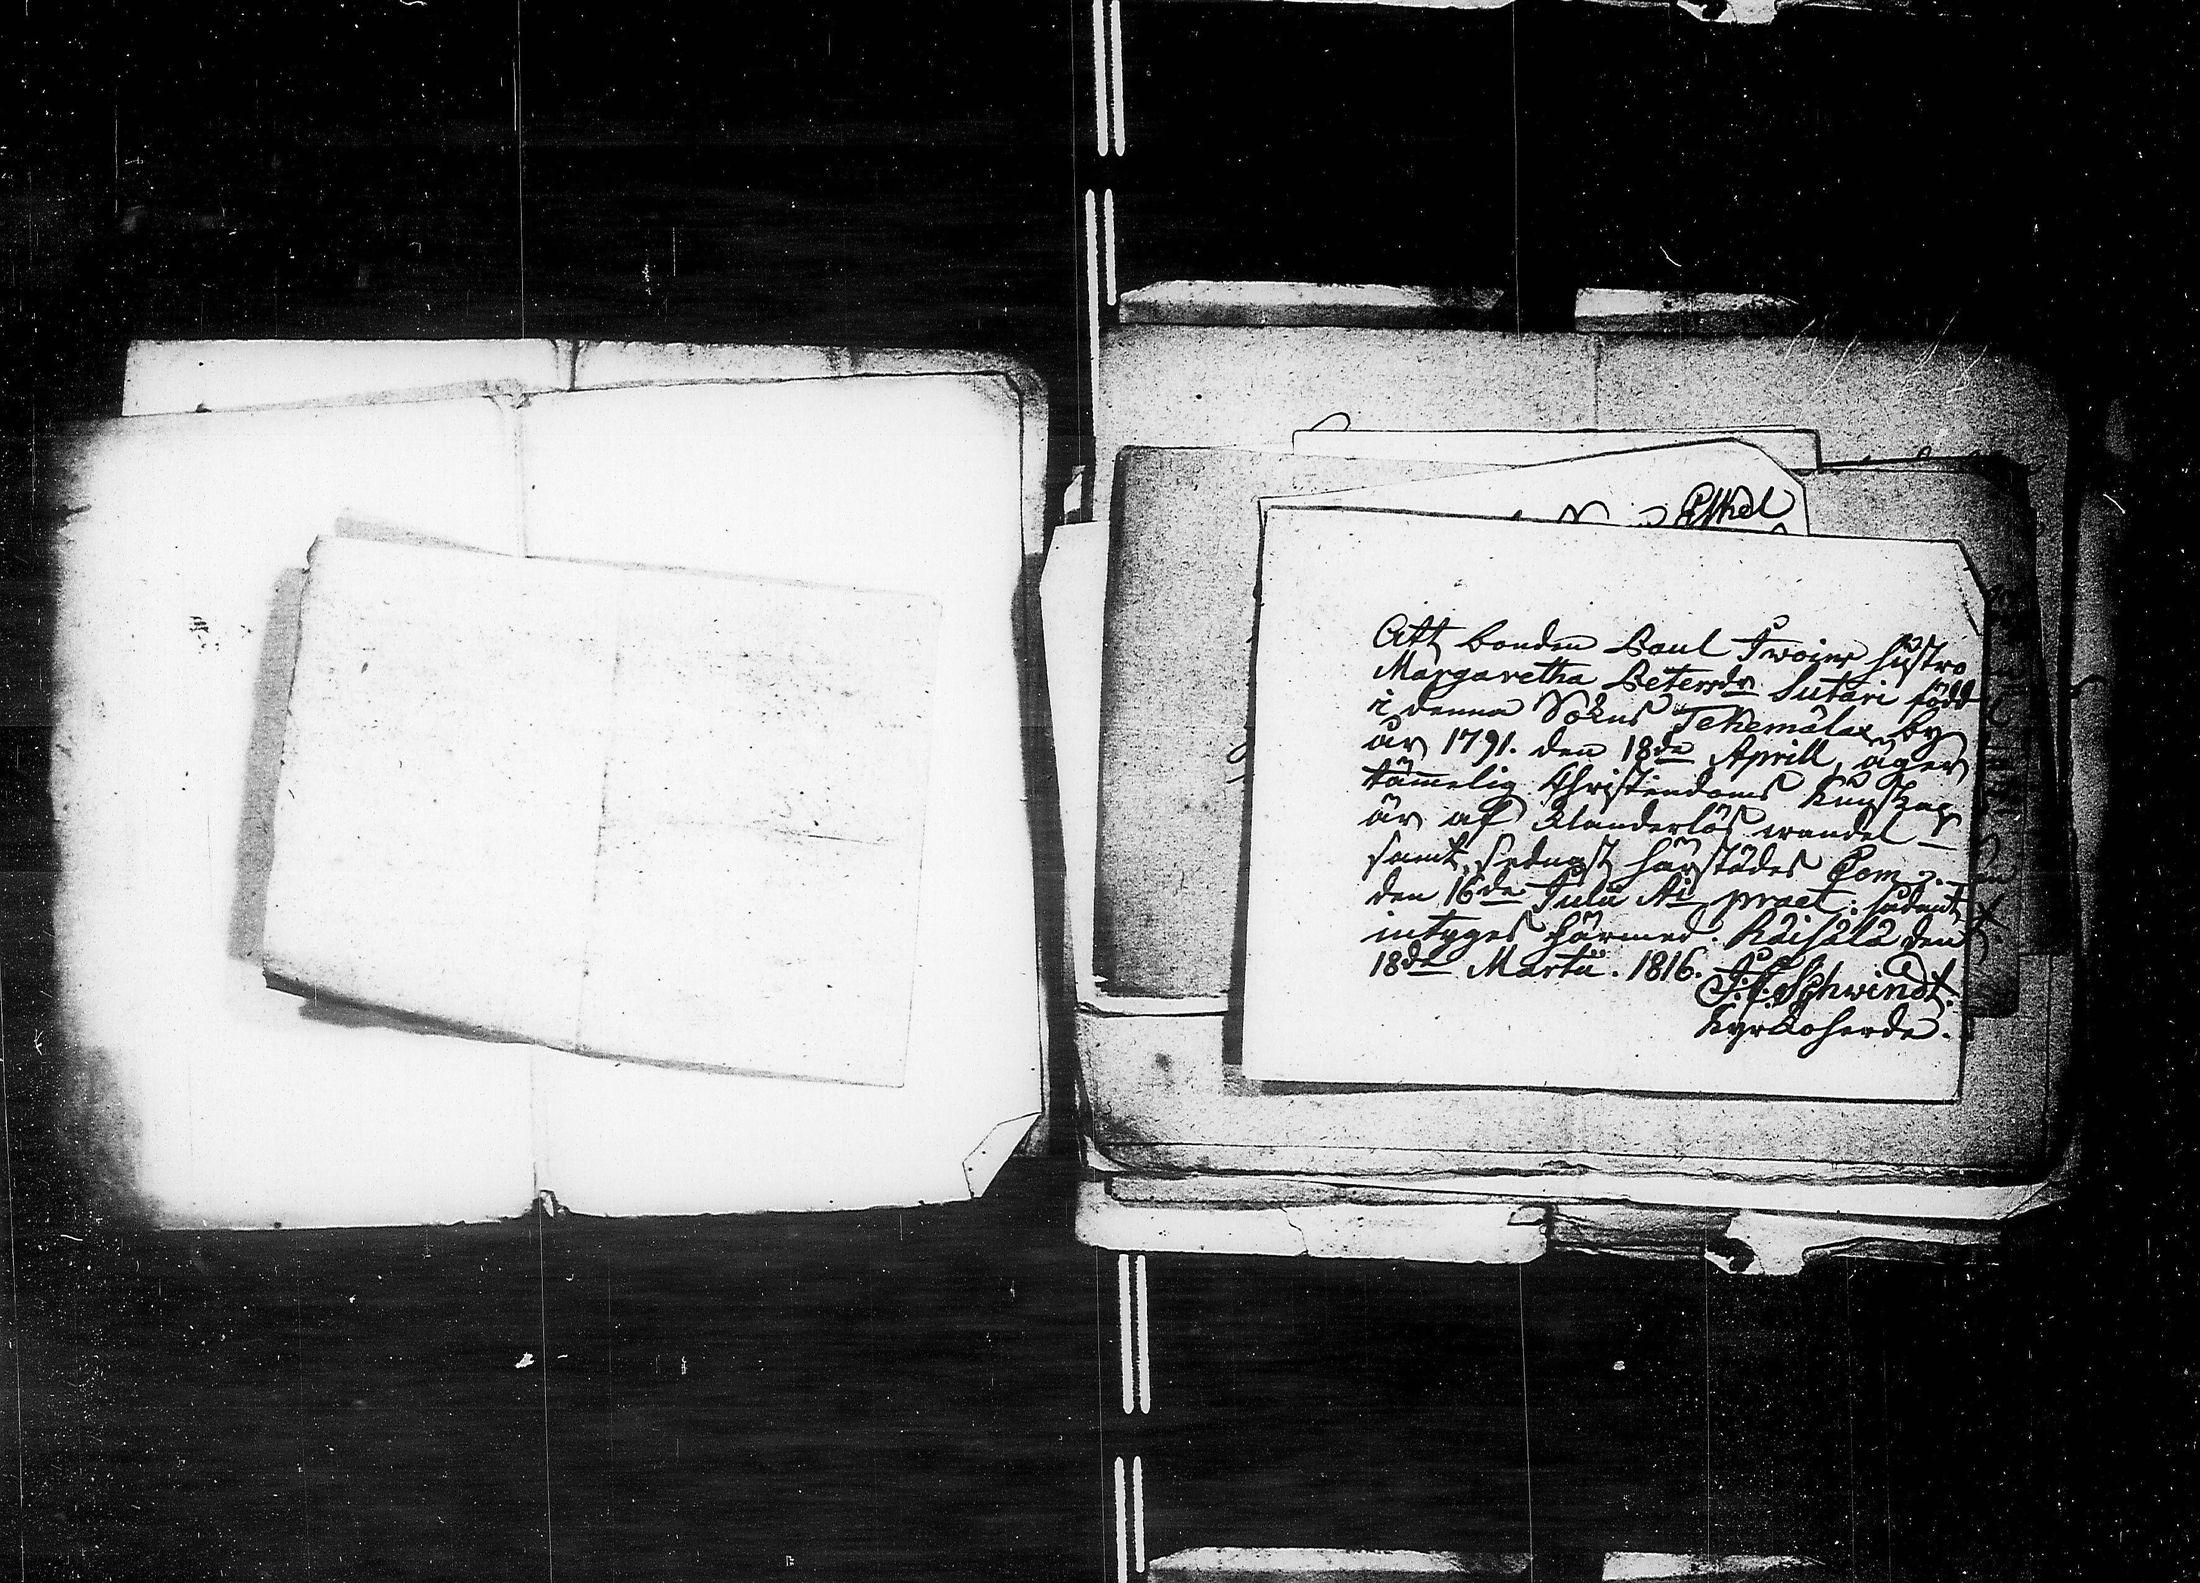 Att bonden Paul Twoins hustro
Margaretha Petersdr Sutari född
i denna Sokns Tekemälax by
år 1791. den 18de Aprill, äger
tämmelig Christendoms kunskap
är af klanderlös wandel
samt sednast härstädes Com.
den 16de Julii Ai praet: sådant
intyges härmed. Räisälä den
18de Martii. 1816.
Schwindt.
Kyrkoherde.